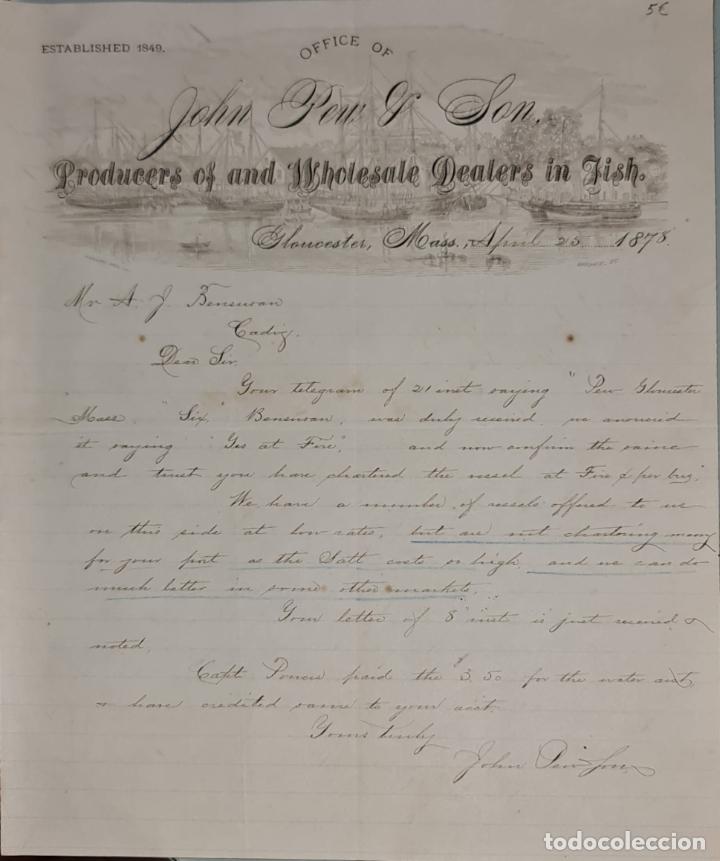 5€
ESTABLISHED 1849.
OFFICE OF
John Pew & Son.
Producers of and Wholesale Dealers in Fish.
Gloucester, Mass., April 23 1878.
Mr A. J. Bensusan
Cadiz.
Dear Sir
Your telegram of 21 inst saying "Pew Gloucester
Mass "Six," Bensusan, was duly received, we answered
it saying "Yes at Five", and now confirm the same
and trust you have chartered the vessel at Five &
We have a number of vessels offered to us
on this side at low rates, but are not chartering many
for your port as the Salt costs so high, and we can do
much better in some other markets.
Your letter of 8 inst is just received &
noted.
Capt paid the $3.50 for the water
& have credited same to your acct.
Yours truly
John Pew & Son
todocoleccion
todocoleccion.net